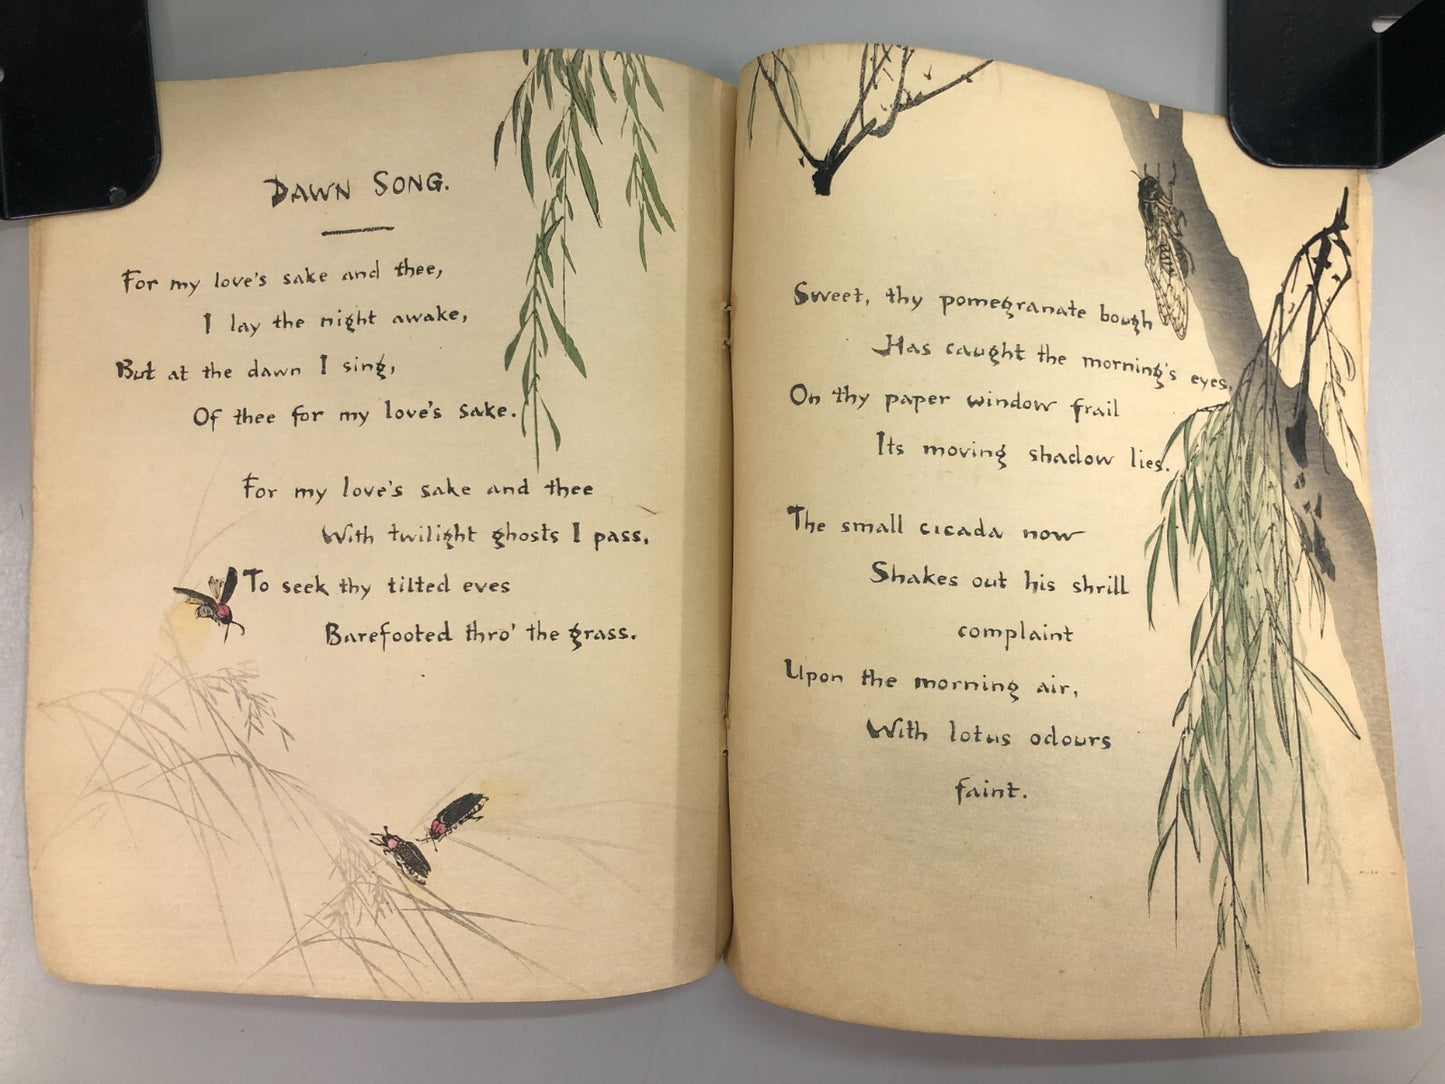 DAWN SONG.
For my love's sake and thee,
I lay the night awake,
But at the dawn I sing,
Of thee for my love's sake.
For my love's sake and thee
With twilight ghosts I pass,
To seek thy tilted eves
Barefooted thro' the grass.
Sweet, thy pomegranate bough
Has caught the morning's eyes,
On thy paper window frail
Its moving shadow lies.
The small cicada now
Shakes out his shrill
complaint
Upon the morning air,
With lotus odours
faint.